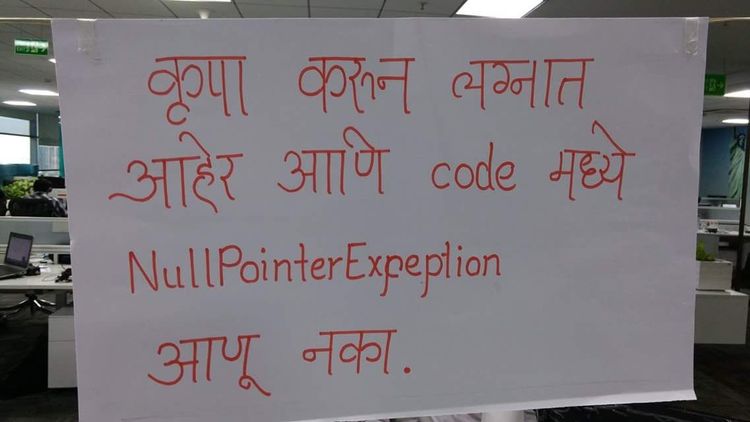 कृपा करून लग्नात
आहेर आणि code मध्ये
NullPointerExpeption
आणू नका.